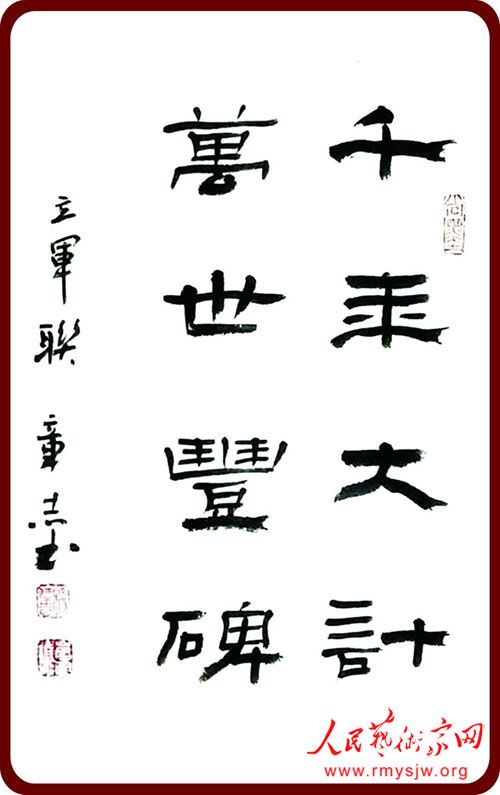 千年大计
萬世豐碑
立軍聯 童志书
人民艺術家网
www.rmysjw.org